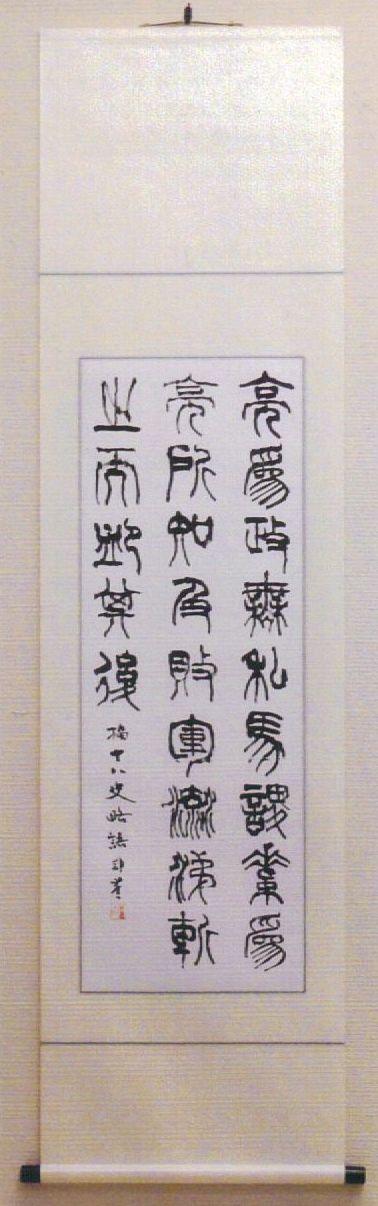 亮爲政無私馬謖素爲
亮所知及敗軍流涕斬
之而卹其後
橅十八史略語